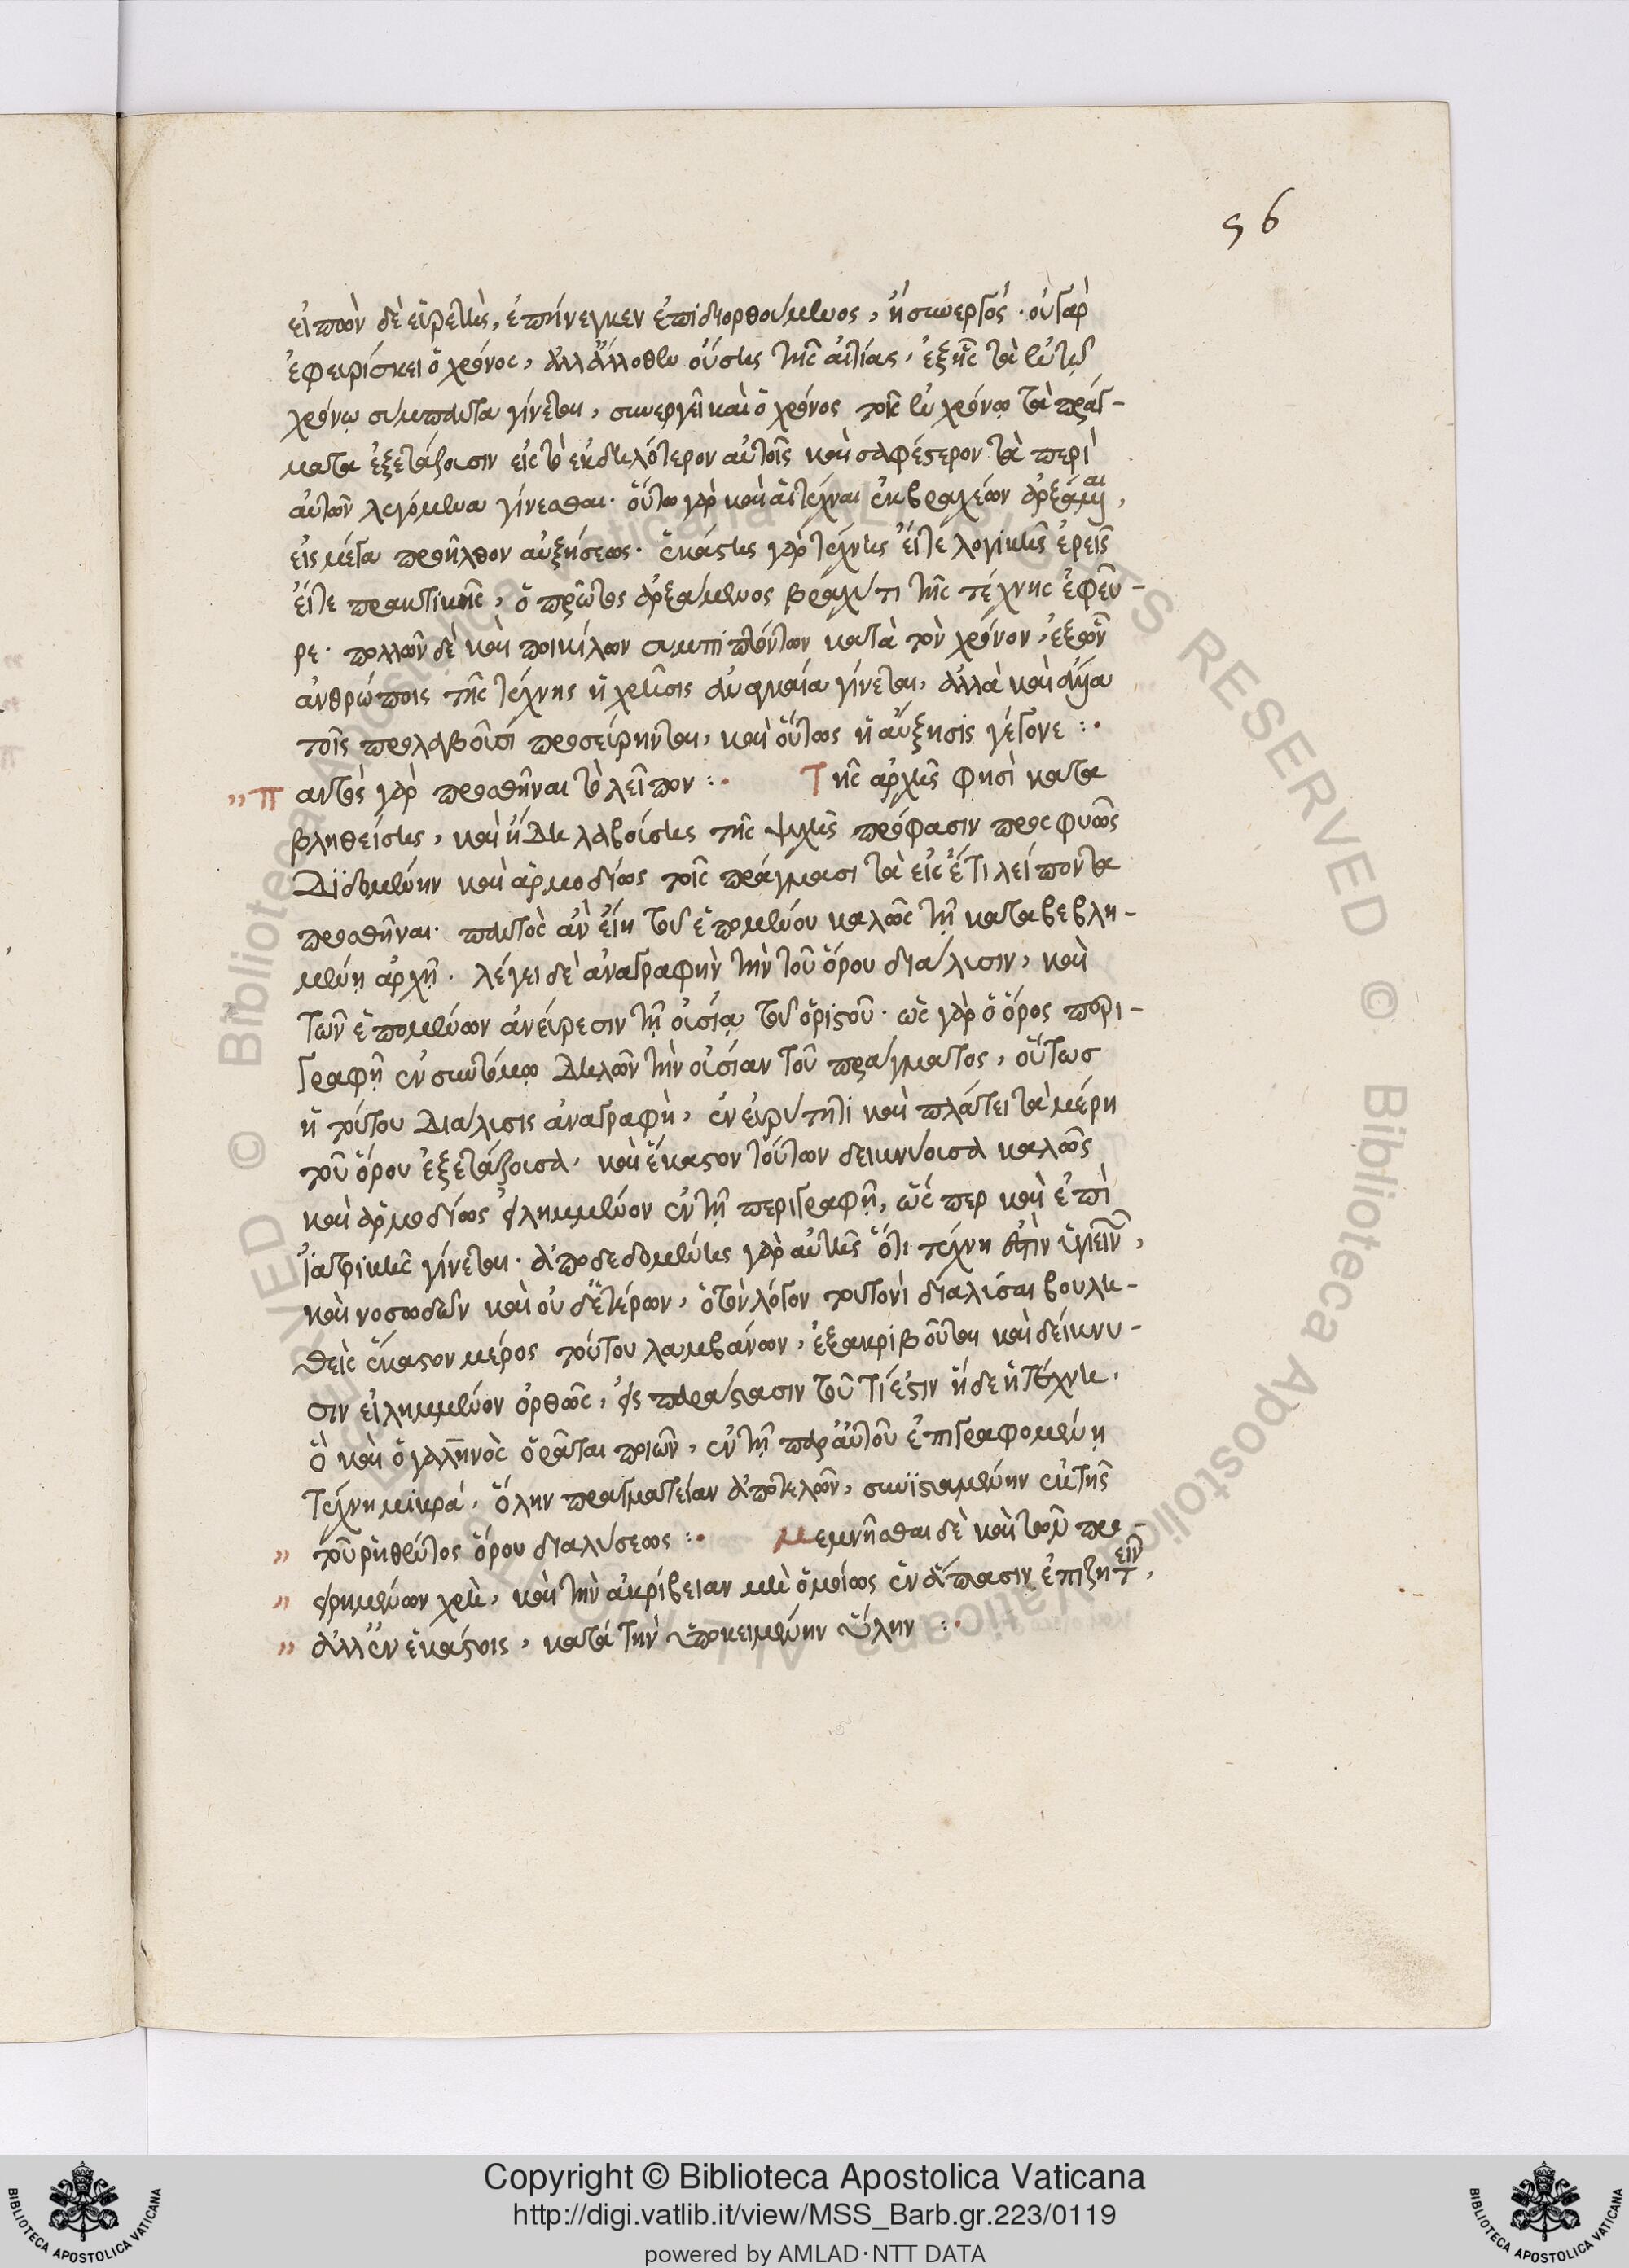 56
εἰπὼν δὲ εὑρετὴς, ἐπήνεγκεν ἐπιδιορθούμενος, ἢ συνεργός· οὐ γὰρ
ἐφευρίσκει ὁ χρόνος, ἀλλ' ἄλλοθεν οὔσης τῆς αἰτίας, ἐξ ἧς τὰ ἐν τῷ
χρόνῳ σύμπαντα γίνεται, συνεργεῖ καὶ ὁ χρόνος τοῖς ἐν χρόνῳ τὰ πράγ-
ματα ἐξετάζουσιν εἰς τὸ ἐκδηλότερον αὐτοῖς καὶ σαφέστερον τὰ περὶ
αὐτῶν λεγόμενα γίνεσθαι. οὕτω γὰρ καὶ αἱ τέχναι ἐκ βραχέων ἀρξάμεναι,
εἰς μέγα προῆλθον αὐξήσεως. ἑκάστης γὰρ τέχνης εἴτε λογικῆς ἐρεῖς
εἴτε πρακτικῆς, ὁ πρῶτος ἀρξάμενος βραχύ τι τῆς τέχνης ἐφεῦ-
ρε. πολλῶν δὲ καὶ ποικίλων συμπιπτόντων κατὰ τὸν χρόνον, ἐξ ὧν
ἀνθρώποις τῆς τέχνης ἡ χρῆσις ἀναγκαία γίνεται, ἀλλὰ καὶ ἀντία
τοῖς προλαβοῦσι προσεύρηνται, καὶ οὕτως ἡ αὔξησις γέγονε :·
" Παντὸς γὰρ προσθῆναι τὸ λεῖπον :· Τῆς ἀρχῆς φησὶ κατα
βληθείσης, καὶ ἤδη λαβούσης τῆς ψυχῆς πρόφασιν προσφυῶς
διδομένην καὶ ἁρμοδίως τοῖς πράγμασι τὰ εἰς ἔτι λείποντα
προσθῆναι. παντὸς ἂν εἴη τοῦ ἑπομένου καλῶς τῇ καταβεβλη-
μένῃ ἀρχῇ. λέγει δὲ ἀναγραφὴν τὴν τοῦ ὅρου διάλυσιν, καὶ
τῶν ἑπομένων ἀνεύρεσιν τῇ οὐσίᾳ τοῦ ὁριστοῦ. ὡς γὰρ ὁ ὅρος περι-
γραφῇ ἐν συντόμῳ δηλῶν τὴν οὐσίαν τοῦ πράγματος, οὕτως
ἡ τούτου διάλυσις ἀναγραφὴ, ἐν εὐρύτητι καὶ πλάτει τὰ μέρη
τοῦ ὅρου ἐξετάζουσα, καὶ ἕκαστον τούτων δεικνύουσα καλῶς
καὶ ἁρμοδίως εἰλημμένον ἐν τῇ περιγραφῇ, ὥς περ καὶ ἐπὶ
ἰατρικῆς γίνεται. ἀποδεδομένης γὰρ αὐτῆς ὅτι τέχνη ἐστὶν ὑγιεινῶν,
καὶ νοσωδῶν καὶ οὐδετέρων, ὁ τὸν λόγον τουτονὶ διαλῦσαι βουλη-
θεὶς ἕκαστον μέρος τούτου λαμβάνων, ἐξακριβοῦται καὶ δείκνυ-
σιν εἰλημμένον ὀρθῶς, εἰς παράστασιν τοῦ τί ἐστιν ἥδε ἡ τέχνη.
ὃ καὶ ὁ γαληνὸς ὁρᾶται ποιῶν, ἐν τῇ παρ' αὐτοῦ ἐπιγραφομένῃ
τέχνῃ μικρᾷ, ὅλην πραγματείαν ἀποτελῶν, συνισταμένην ἐκ τῆς
" τοῦ ῥηθέντος ὅρου διαλύσεως :· Μεμνῆσθαι δὲ καὶ τῶν προ-
" ειρημένων χρὴ, καὶ τὴν ἀκρίβειαν μὴ ὁμοίως ἐν ἅπασιν ἐπιζητεῖν,
" ἀλλ' ἐν ἑκάστοις, κατὰ τὴν ὑποκειμένην ὕλην :·
Copyright © Biblioteca Apostolica Vaticana
http://digi.vatlib.it/view/MSS_Barb.gr.223/0119
powered by AMLAD·NTT DATA